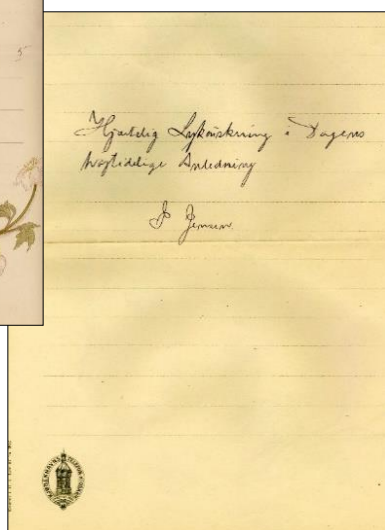 5
Hjærtelig Lykønskning i Dagens
højtidelige Anledning
J Jensen